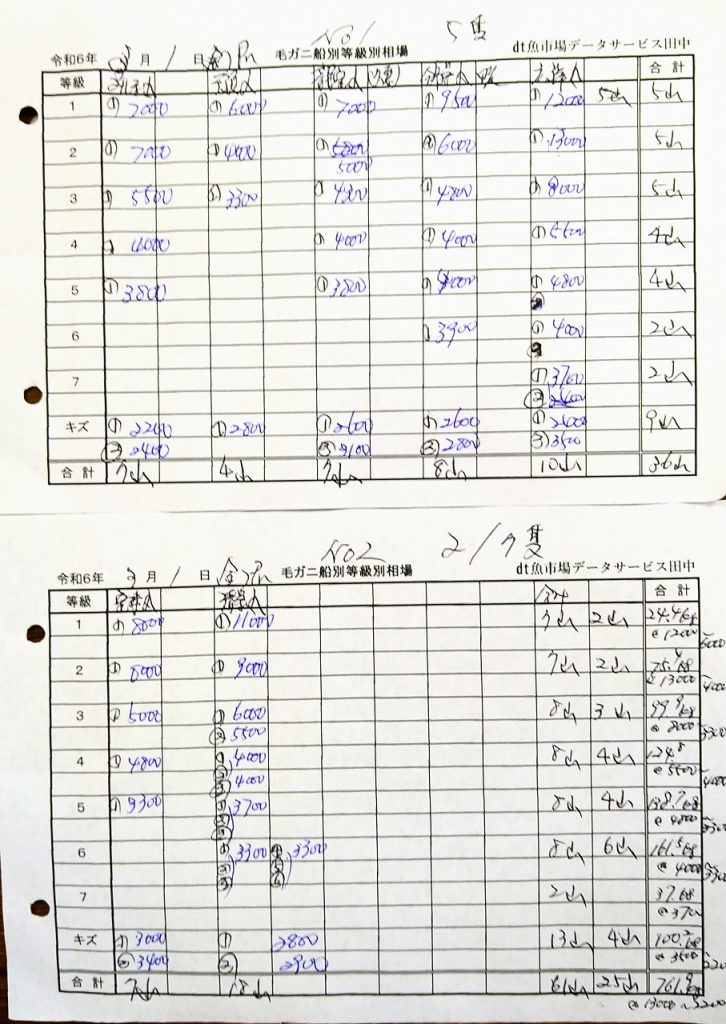 No1 5隻
令和6年 3月 1日 毛ガニ船別等級別相場 dt魚市場データサービス田中
等級 合計
1 ① 7000 ① 6000 ① 7000 ① 9500 ① 12000 5山 5山
2 ① 7000 ① 4400 ① 5000 ② 6000 ① 13000 5山
3 ① 5500 ① 3300 ① 4800 ① 4800 ① 8000 5山
4 ① 4000 ① 4000 ① 4000 ① 5500 4山
5 ① 3800 ① 3800 ① ① 4800 4山
6 ① 3900 ① 4000 2山
7 ① 3700 2山
② 2400
キズ ① 2200 ① 2800 ① 2600 ① 2600 ① 2600 9山
② 2400 ② 2100 ② 2800 ② 3500
合計 7山 4山 7山 8山 10山 36山
No2 2/7隻
令和6年 3月 1日 毛ガニ船別等級別相場 dt魚市場データサービス田中
等級 合計
1 ① 8000 ① 11000 7山 2山 24.4kg
@ 12000 ~6000
2 ① 6000 ① 9000 7山 2山 75.4kg
@ 13000 ~4400
3 ① 5000 ① 6000 8山 3山 99.9kg
② 5500 @ 8000 ~3300
4 ① 4800 ① 4000 8山 4山 124.8
② 4000 @ 5500 ~4000
5 ① 3300 ① 3700 8山 4山 138.7kg
@ 4800 ~3300
6 ① 3300 ④ 3300 8山 6山 161.5kg
② ⑤
③ ⑥ @ 4000 ~3300
7 2山 37.6kg
@ 3700
キズ ① 3000 ① 2800 13山 4山 100.2kg
② 3400 ② 2900 @ 3500 ~2200
合計 7山 18山 61山 25山 761.9kg
@ 13000 ~2200